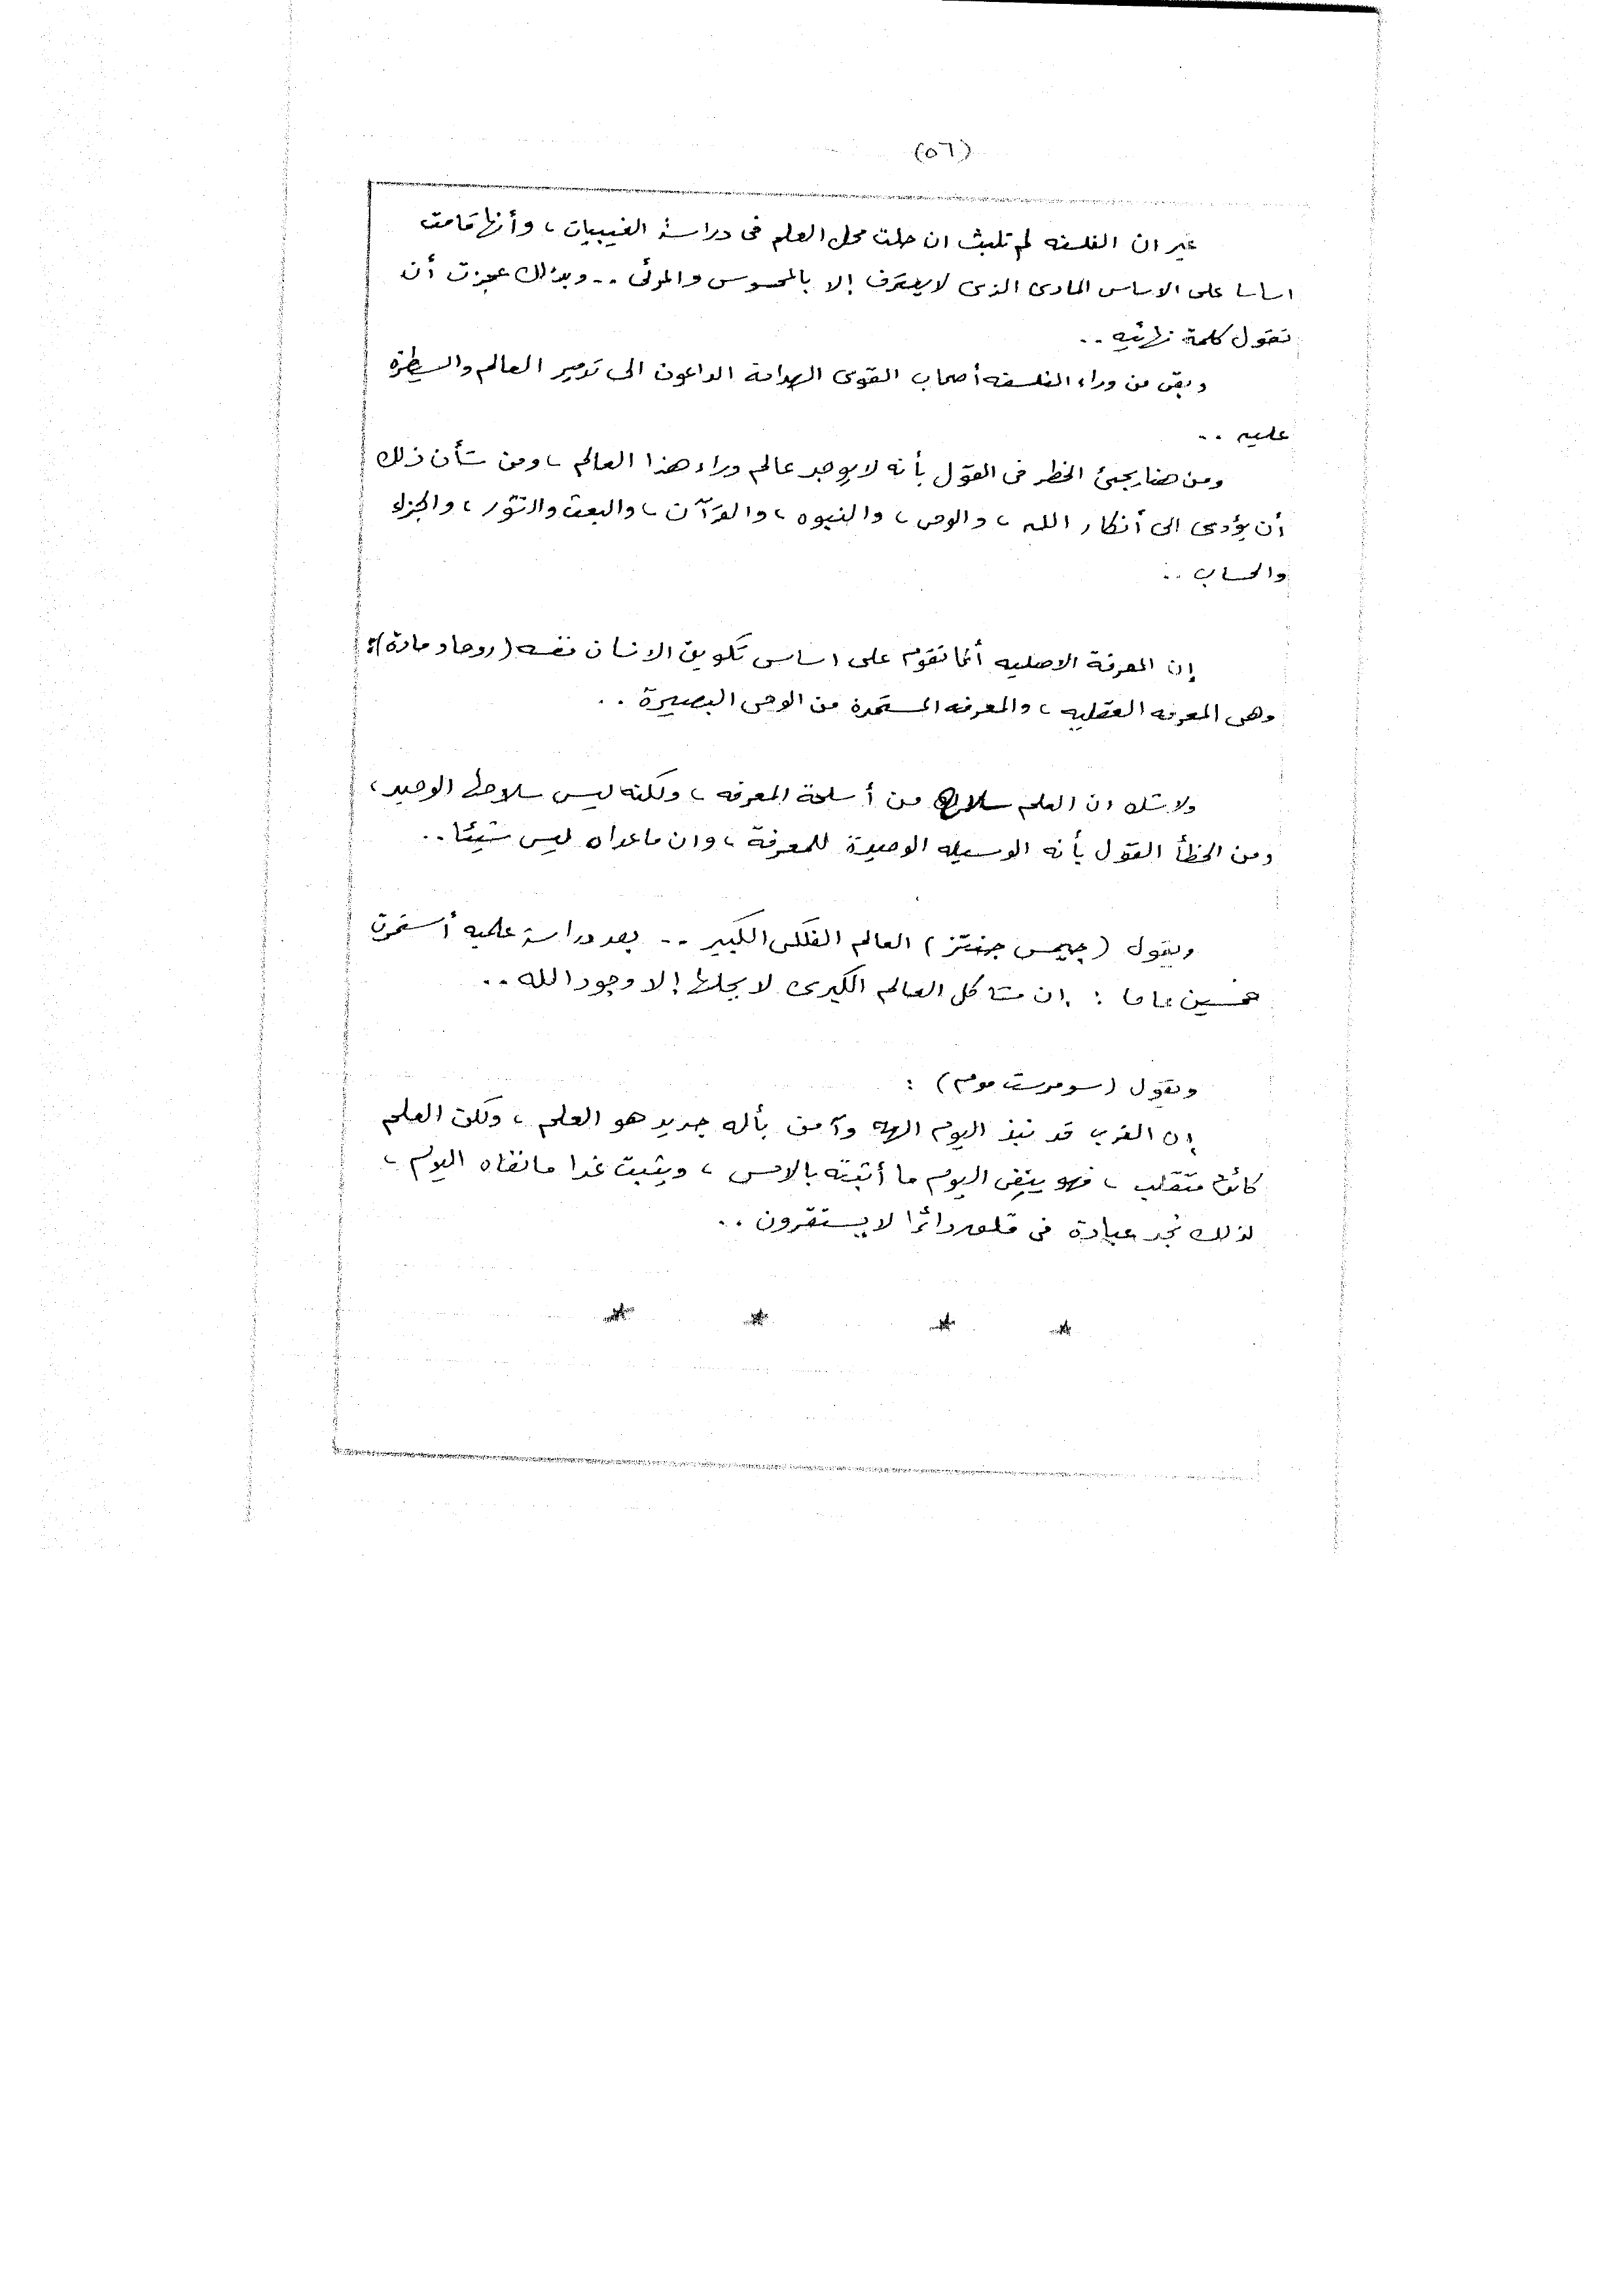 (٥٦)
غير ان الفلسفه لم تلبث ان حلت محل العلم فى دراسة الغيبيات ، وأنها قامت
اساسا على الاساس المادى الذى لايعترف إلا بالمحسوس والمرئى .. وبذلك عجزت أن
تقول كلمة نهائيه ..
وبقى من وراء الفلسفه أصحاب القوى الهدامة الداعون الى تدمير العالم والسيطرة
عليه ..
ومن هنا يجئ الخطر فى القول بأنه لا يوجد عالم وراء هذا العالم ، ومن شأن ذلك
أن يؤدى الى أنكار الله ، والوحى ، والنبوه ، والقرآن ، والبعث والنشور ، والجزاء
والحساب ..
إن المعرفة الاصليه أنما تقوم على اساس تكوين الانسان نفسه (روحا و مادة) :
وهى المعرفه العقليه ، والمعرفه المستمدة من الوحى البصيرة ..
ولاشك ان العلم سلاح من أسلحة المعرفه ، ولكنه ليس سلاحها الوحيد ،
ومن الخطأ القول بأنه الوسيله الوحيدة للمعرفة ، وان ماعداه ليس شيئا ..
ويقول (جيمس جنتز) العالم الفلكى الكبير .. بعد دراسة علميه أستمرت
خمسين عاما : إن مشاكل العالم الكبرى لا يحلها إلا وجود الله ..
ويقول (سومرست موم) :
إن الغرب قد نبذ اليوم الهه وآمن بأله جديد هو العلم ، ولكن العلم
كائن متقلب ، فهو ينفى اليوم ما أثبته بالامس ، ويثبت غدا مانفاه اليوم ،
لذلك نجد عبادة فى قلق دائما لا يستقرون ..